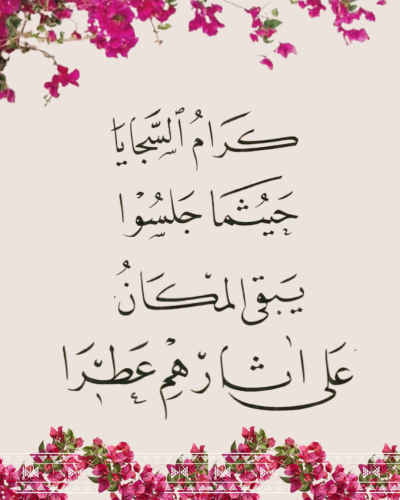 كَرَامُ ٱلسَّجَايَا
حَيْثُمَا جَلَسُوْا
يَبْقَى المْكَانُ
عَلَى اٰثَارِهِمْ عَطِرَا